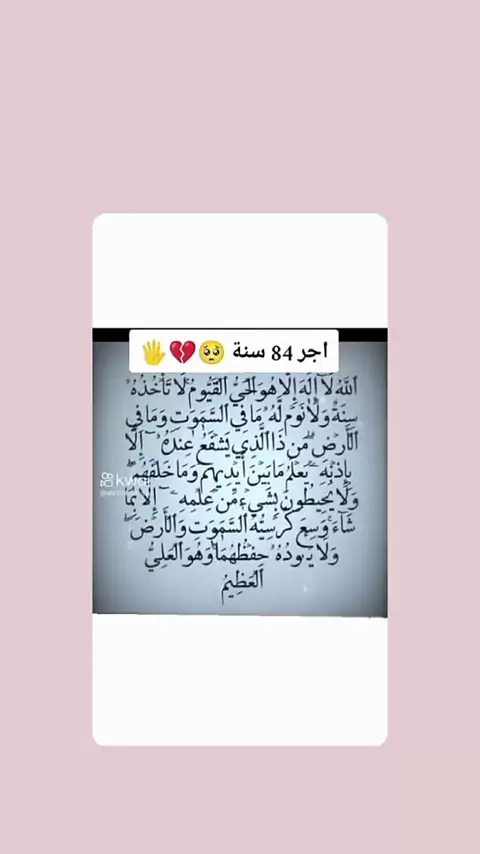 اجر 84 سنة 🥺💔🖐
اللَّهُ لَا إِلَٰهَ إِلَّا هُوَ الْحَيُّ الْقَيُّومُ لَا تَأْخُذُهُ
سِنَةٌ وَلَا نَوْمٌ لَّهُ مَا فِي السَّمَٰوَٰتِ وَمَا فِي
الْأَرْضِ مَن ذَا الَّذِي يَشْفَعُ عِندَهُ إِلَّا
بِإِذْنِهِ يَعْلَمُ مَا بَيْنَ أَيْدِيهِمْ وَمَا خَلْفَهُمْ
وَلَا يُحِيطُونَ بِشَيْءٍ مِّنْ عِلْمِهِ إِلَّا بِمَا
شَاءَ وَسِعَ كُرْسِيُّهُ السَّمَٰوَٰتِ وَالْأَرْضَ
وَلَا يَـُٔودُهُ حِفْظُهُمَا وَهُوَ الْعَلِيُّ
الْعَظِيمُ
kwai